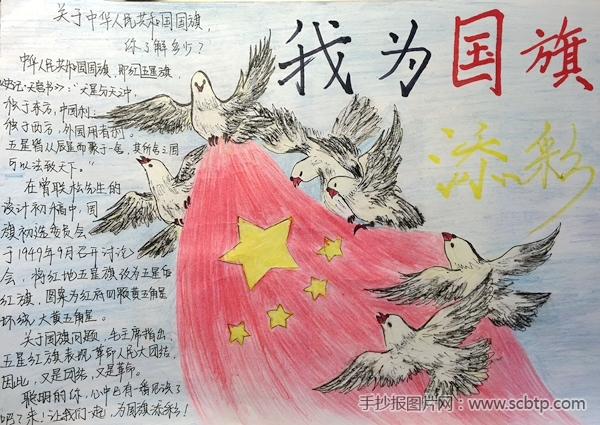 关于中华人民共和国国旗,
你了解多少?
中华人民共和国国旗,即红五星旗,
《史记·天官书》:"五星分天之中,
积于东方,中国利;
积于西方,外国用者利。
五星皆从辰星而聚于一舍,其所舍之国
可以法致天下。"
在曾联松先生的
设计初稿中,国
旗初选委员会
于1949年9月召开讨论
会,将红地五星旗设为五星
红旗,图案为红底四颗黄五角星
环绕大黄五角星。
关于国旗问题,毛主席指出,
五星红旗表现革命人民大团结,
因此,又是团结,又是革命。
聪明的你,心中已有一番见谈了
吗?来!让我们一起,为国旗添彩!
我为国旗
添彩
手抄报图片网:www.scbtp.com